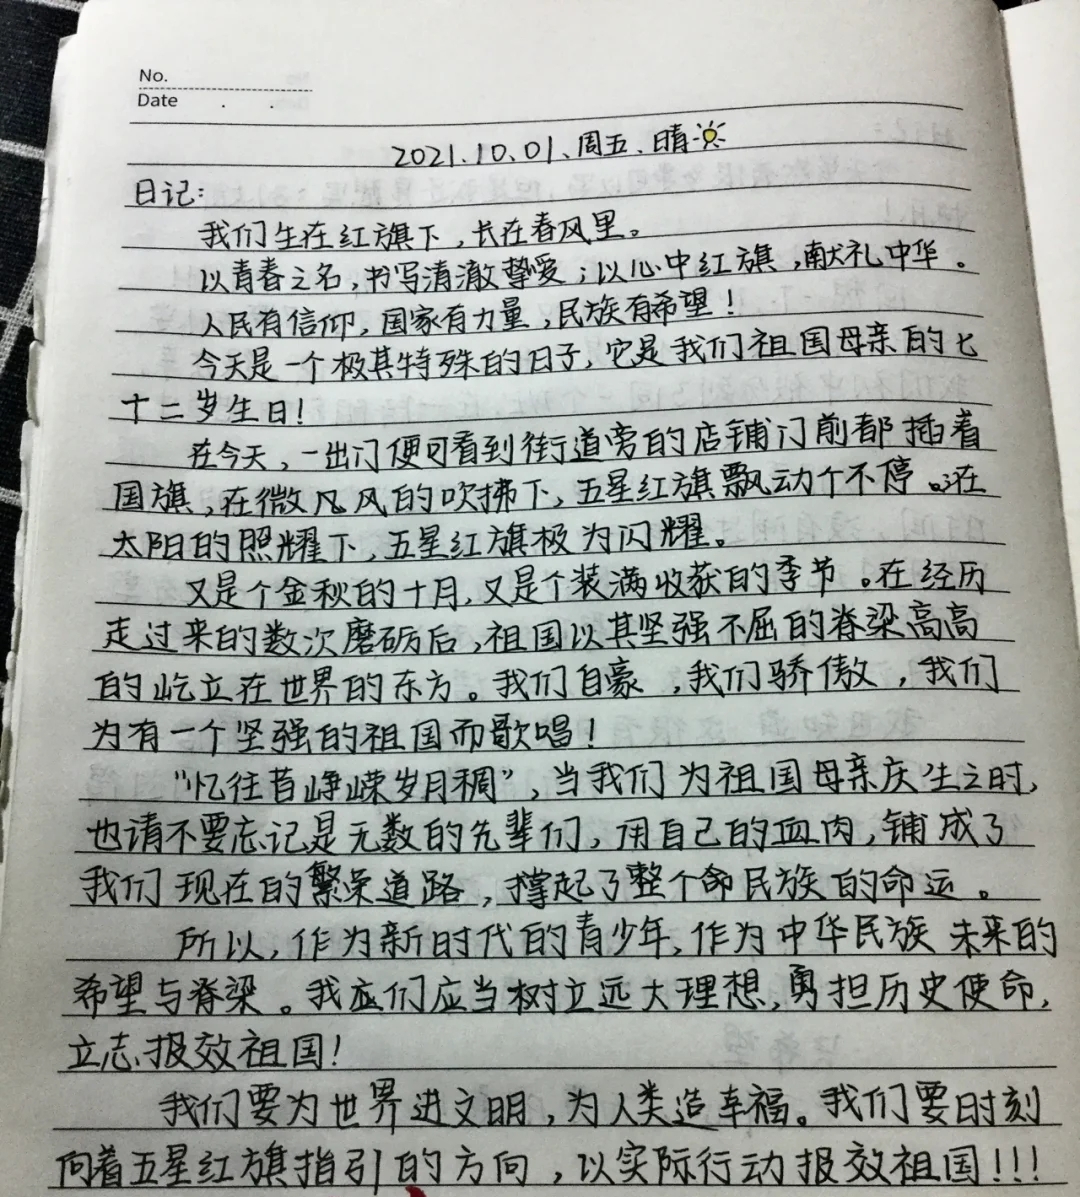 No.
Date . .
2021.10.01、周五、晴
日记:
我们生在红旗下,长在春风里。
以青春之名,书写清澈挚爱;以心中红旗,献礼中华。
人民有信仰,国家有力量,民族有希望!
今天是一个极其特殊的日子,它是我们祖国母亲的七
十二岁生日!
在今天,一出门便可看到街道旁的店铺门前都插着
国旗,在微风的吹拂下,五星红旗飘动个不停。在
太阳的照耀下,五星红旗极为闪耀。
又是个金秋的十月,又是个装满收获的季节。在经历
走过来的数次磨砺后,祖国以其坚强不屈的脊梁高高
的屹立在世界的东方。我们自豪,我们骄傲,我们
为有一个坚强的祖国而歌唱!
“忆往昔峥嵘岁月稠”,当我们为祖国母亲庆生之时,
也请不要忘记是无数的先辈们,用自己的血肉,铺成了
我们现在的繁荣道路,撑起了整个命民族的命运。
所以,作为新时代的青少年,作为中华民族未来的
希望与脊梁。我应们应当树立远大理想,勇担历史使命,
立志报效祖国!
我们要为世界进文明,为人类造幸福。我们要时刻
向着五星红旗指引的方向,以实际行动报效祖国!!!